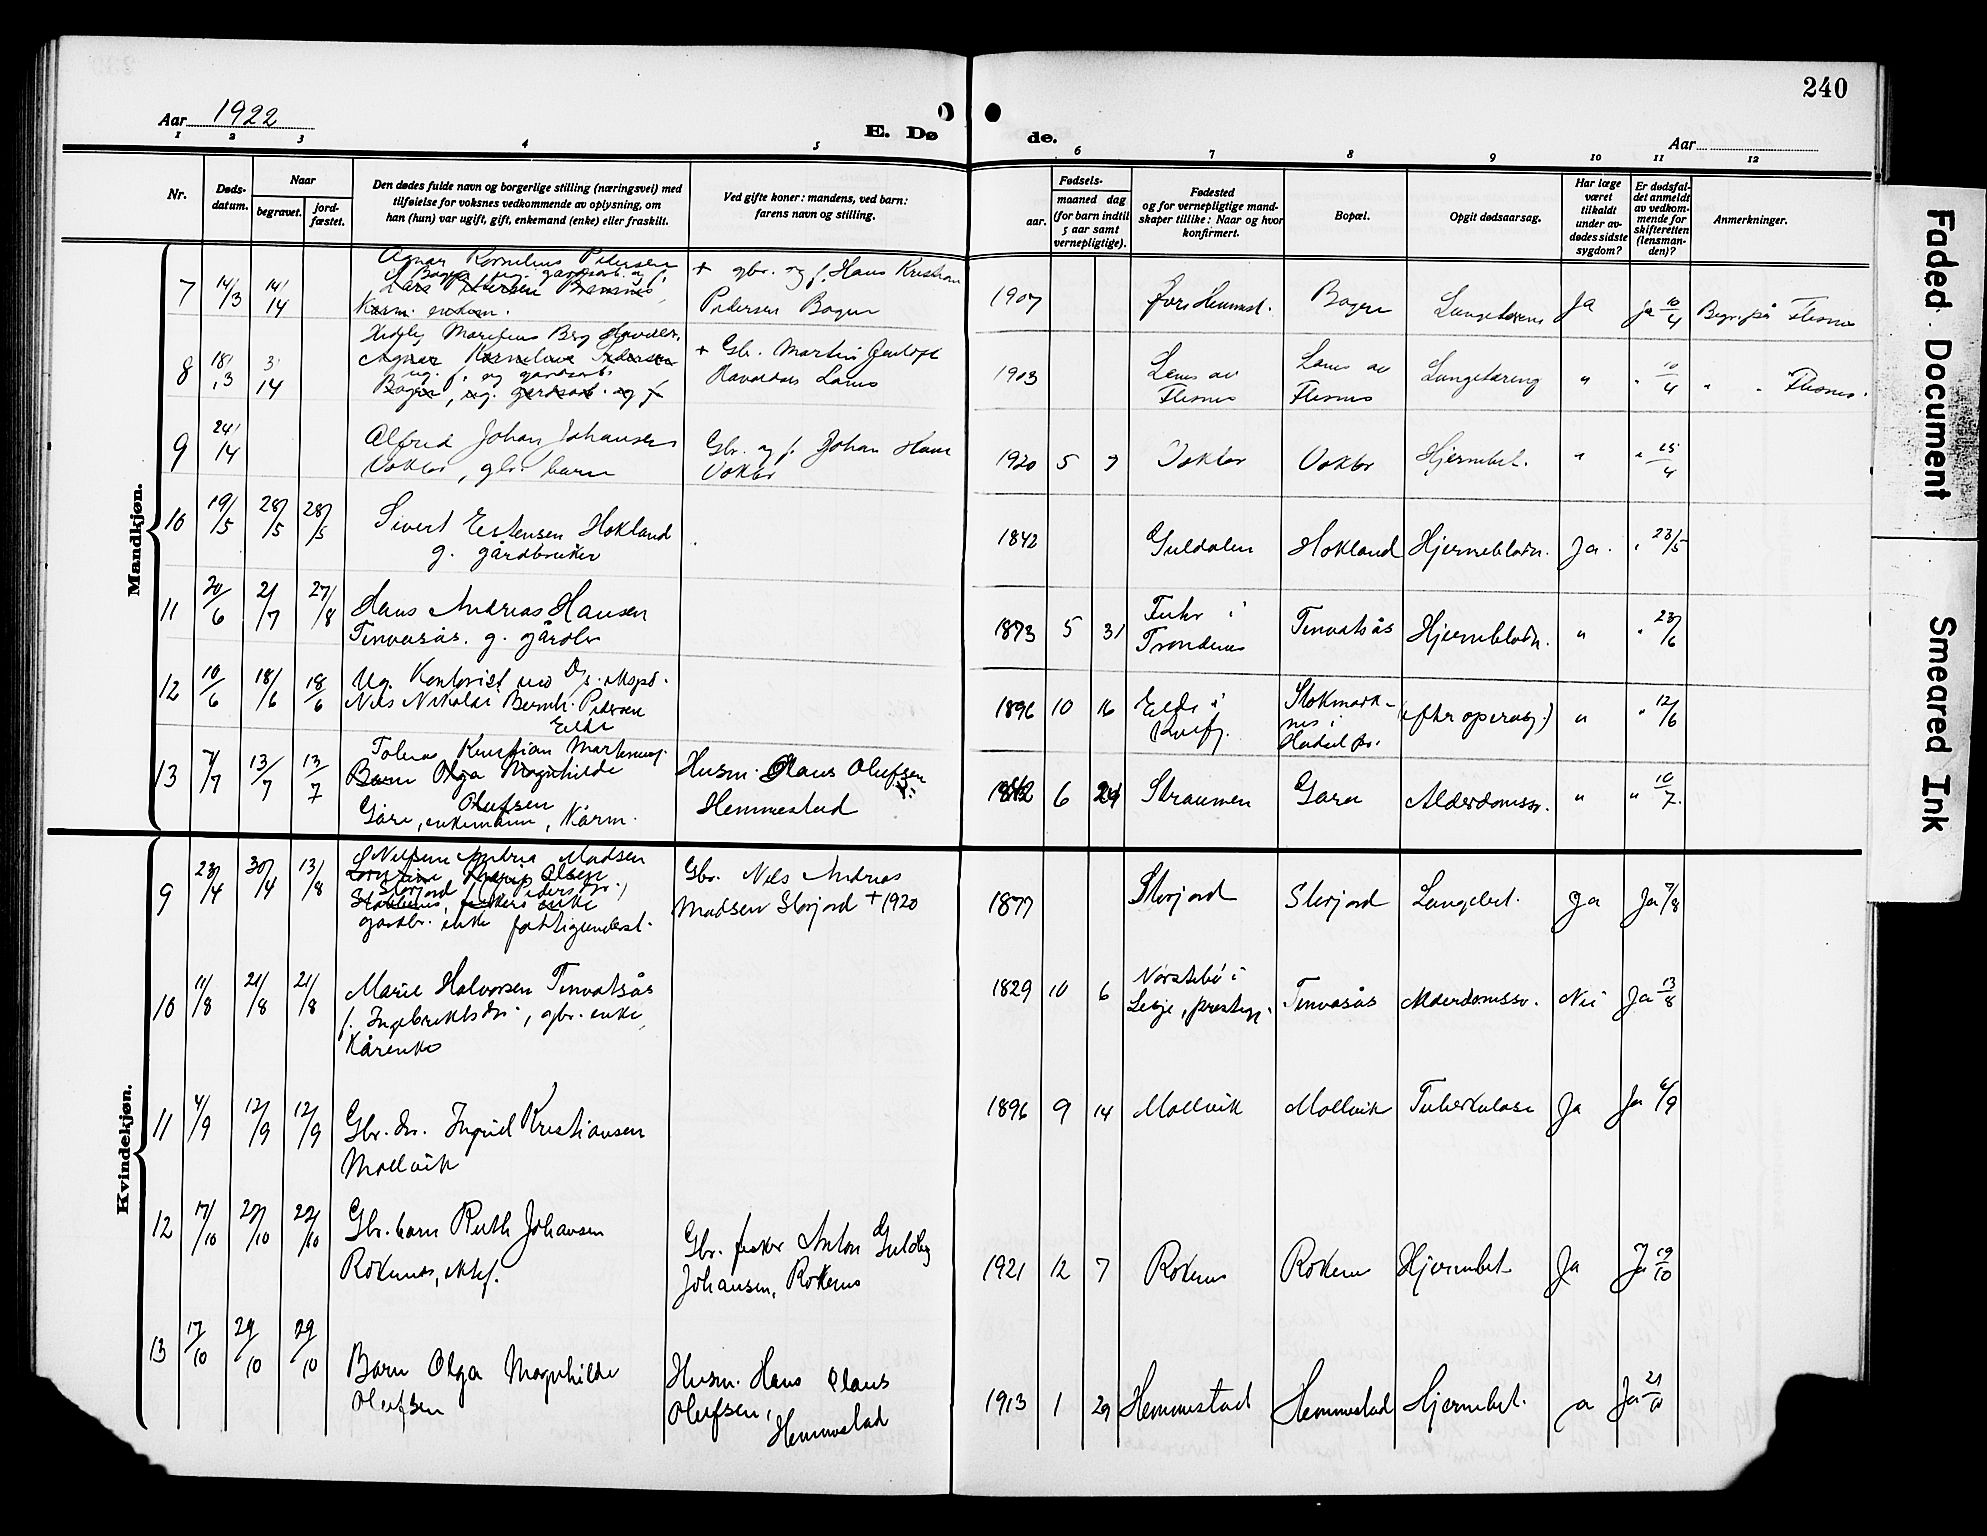 240
Aar 1922
E. Dø de.
Aar
1 2 3 4 5 6 7 8 9 10 11 12
Nr.
Døds-
datum.
Naar
begravet.
jord-
fæstet.
Den dødes fulde navn og borgerlige stilling (næringsvei) med
tilføielse for voksnes vedkommende av oplysning, om
han (hun) var ugift, gift, enkemand (enke) eller fraskilt.
Ved gifte koner: mandens, ved barn:
farens navn og stilling.
Fødsels-
aar.
maaned dag
(for barn indtil
5 aar samt
vernepligtige).
Fødested
og for vernepligtige mand-
skaper tillike: Naar og hvor
konfirmert.
Bopæl.
Opgit dødsaarsag.
Har læge
været
tilkaldt
under av-
dødes sidste
sygdom?
Er dødsfal-
det anmeldt
av vedkom-
mende for
skifteretten
(lensman-
den)?
Anmerkninger.
Mandkjøn.
7 14/3 14/14
Agnar Kornelius Pedersen
Lars Petersen
+ gbr. og f. Hans Kristian
Pedersen Bogen
1907 Bogen Ja ja 10/4 Flesnes
8 18/3 3/14
Marelius Berg
Agnar Kornelius Pedersen
ug. f. og gardsarb.
Bogen, ug. gardsarb. og f.
+ Gbr. Martin
Lanes
1903 Lanes av
Flesnes
Lanes av
Flesnes
Lungetæring " " 10/4 " " Flesnes.
9 24/14
Alfred Johan Johansen
Voktor, gbr. barn
Gbr. og f. Johan Hans
Voktor
1920 5 7 Voktor Voktor Hjernebet. " " 25/4
10 19/5 28/5 28/5
Sivert Estensen Hokland
g. gårdbruker
1842 Guldalen Hokland Hjerneblødn. Ja. " 23/5
11 20/6 2/7 27/8
Hans Andreas Hansen
Tennvasås. g. gårdbr
1873 5 31
i
Trondenes
Tennvatsås Hjerneblødn. " " 23/6
12 10/6 18/6 18/6
Ug. Kontorist ved D/s. eksped.
Nils Nikolai Bernh. Pedersen
Elde
1896 10 16 Elde i
Kvæfj.
Stokmark-
nes i
Hadsel
(efter operasj.) " " 12/6
13 7/7 13/7 13/7
Tobias Kristian Martinussen
Barn Olga Magnhilde
Olufsen
Gåre, enkemann, Kårm.
Husm. Claus Olufsen
Hemmestad
1842 6 24 Straumen Gåra Alderdomssv. " " 10/7.
Kvindekjøn.
9 23/4 30/4 13/8
Nilsine Andrea Madsen
Marie Olsen
Storjord, f. Pedersdtr.,
enke
gårdbr. enke fattigunderst.
Gbr. Nils Andreas
Madsen Storjord + 1920
1877 Storjord Storjord Lungebet. Ja Ja 7/8
10 11/8 21/8 21/8
Marie Halvorsen Tennvatsås
f. Ingebrektsdtr., gbr. enke,
Kårenke
1829 10 6 Nørstebö i
Lesje, prestegj.
Tennvasås Alderdomssv. Nei Ja 13/8
11 4/9 12/9 12/9
Gbr. dtr. Ingrid Kristiansen
Mollvik
1896 9 14 Mollvik Mollvik Tuberkulose Ja Ja 6/9
12 17/10 22/10 22/10
Gbr. barn Ruth Johansen
Røkenes, ektef.
Gbr. fisker Anton Guldby
Johansen, Røkenes
1921 12 7 Røkenes Røkenes Hjernebet. Ja Ja 19/10
13 17/10 29/10 29/10
Barn Olga Magnhilde
Olufsen
Husm. Hans Claus
Olufsen,
Hemmestad
1913 1 29 Hemmestad Hemmestad Hjernebet. Ja Ja 21/10
Faded Document
Smeared Ink